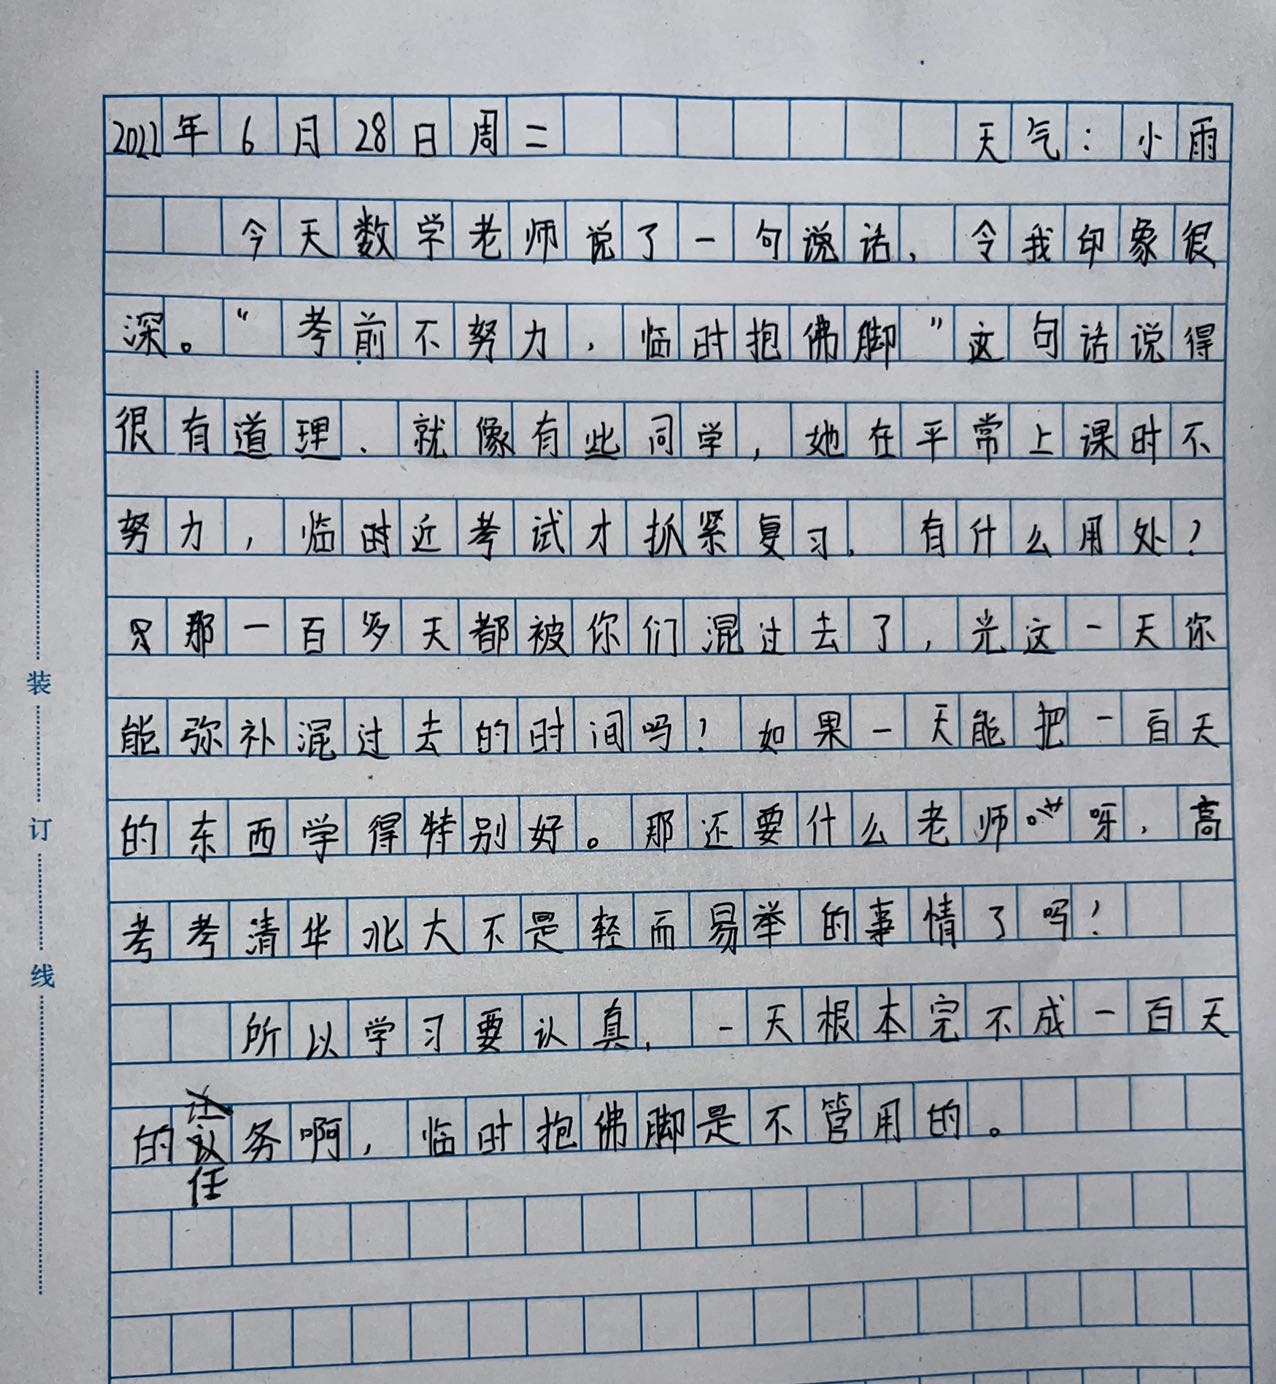 2022年6月28日周二 天气：小雨
今天数学老师说了一句说话，令我印象很
深。“考前不努力，临时抱佛脚”这句话说得
很有道理、就像有些同学，她在平常上课时不
努力，临时近考试才抓紧复习，有什么用处？
那一百多天都被你们混过去了，光这一天你
能弥补混过去的时间吗？如果一天能把一百天
的东西学得特别好。那还要什么老师呀，高
考考清华北大不是轻而易举的事情了吗？
所以学习要认真，一天根本完不成一百天
的任务啊，临时抱佛脚是不管用的。
装
订
线